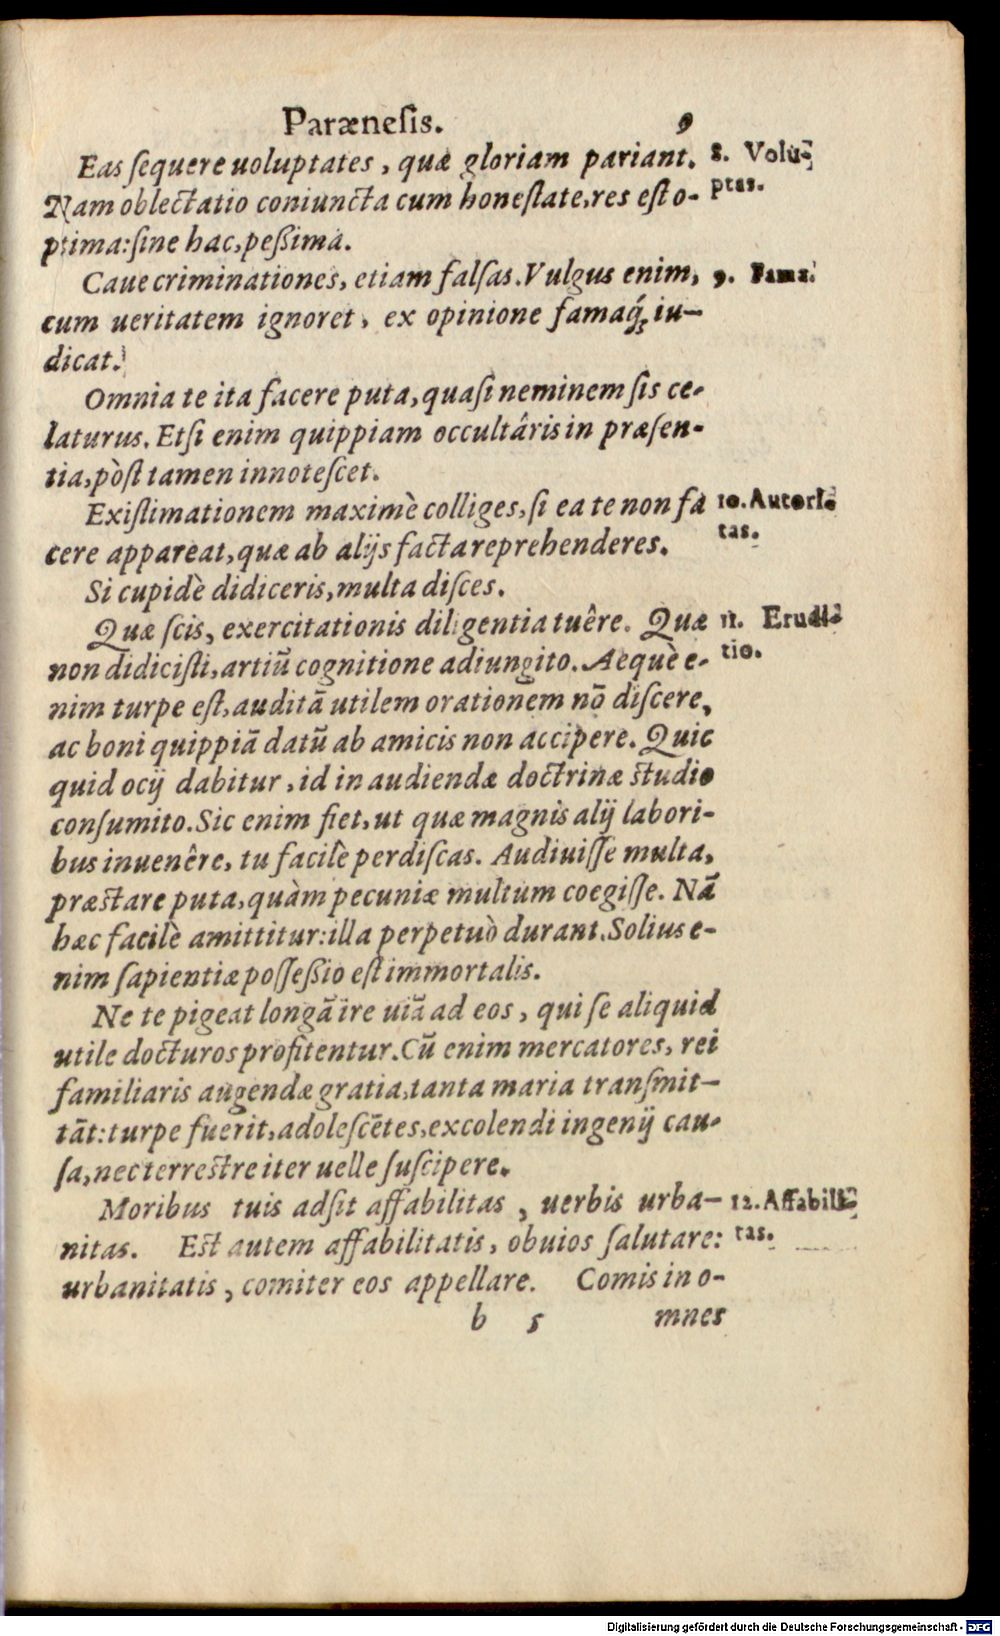 Parænesis. 9
Eas sequere uoluptates, quæ gloriam pariant. 8. Volu-
Nam oblectatio coniuncta cum honestate, res est o- ptas.
ptima: sine hac, peßima.
Caue criminationes, etiam falsas. Vulgus enim, 9. Fama.
cum ueritatem ignoret, ex opinione famaq́; iu-
dicat.
Omnia te ita facere puta, quasi neminem sis ce-
laturus. Etsi enim quippiam occultâris in præsen-
tia, pòst tamen innotescet.
Existimationem maximè colliges, si ea te non fa 10. Autori-
cere appareat, quæ ab alijs facta reprehenderes. tas.
Si cupidè didiceris, multa disces.
Quæ scis, exercitationis diligentia tuêre. Quæ 11. Erudi-
non didicisti, artiũ cognitione adiungito. Aequè e- tio.
nim turpe est, auditã utilem orationem nõ discere,
ac boni quippiã datũ ab amicis non accipere. Quic
quid ocij dabitur, id in audiendæ doctrinæ studio
consumito. Sic enim fiet, ut quæ magnis alij labori-
bus inuenêre, tu facilè perdiscas. Audiuisse multa,
præstare puta, quàm pecuniæ multum coegisse. Nã
hæc facilè amittitur: illa perpetuò durant. Solius e-
nim sapientiæ possessio est immortalis.
Ne te pigeat longã ire uiã ad eos, qui se aliquid
utile docturos profitentur. Cũ enim mercatores, rei
familiaris augendæ gratia, tanta maria transmit-
tãt: turpe fuerit, adolescẽtes, excolendi ingenij cau-
sa, nec terrestre iter uelle suscipere.
Moribus tuis adsit affabilitas, uerbis urba- 12. Affabili-
nitas. Est autem affabilitatis, obuios salutare: tas.
urbanitatis, comiter eos appellare. Comis in o-
b 5 mnes
Digitalisierung gefördert durch die Deutsche Forschungsgemeinschaft - DFG